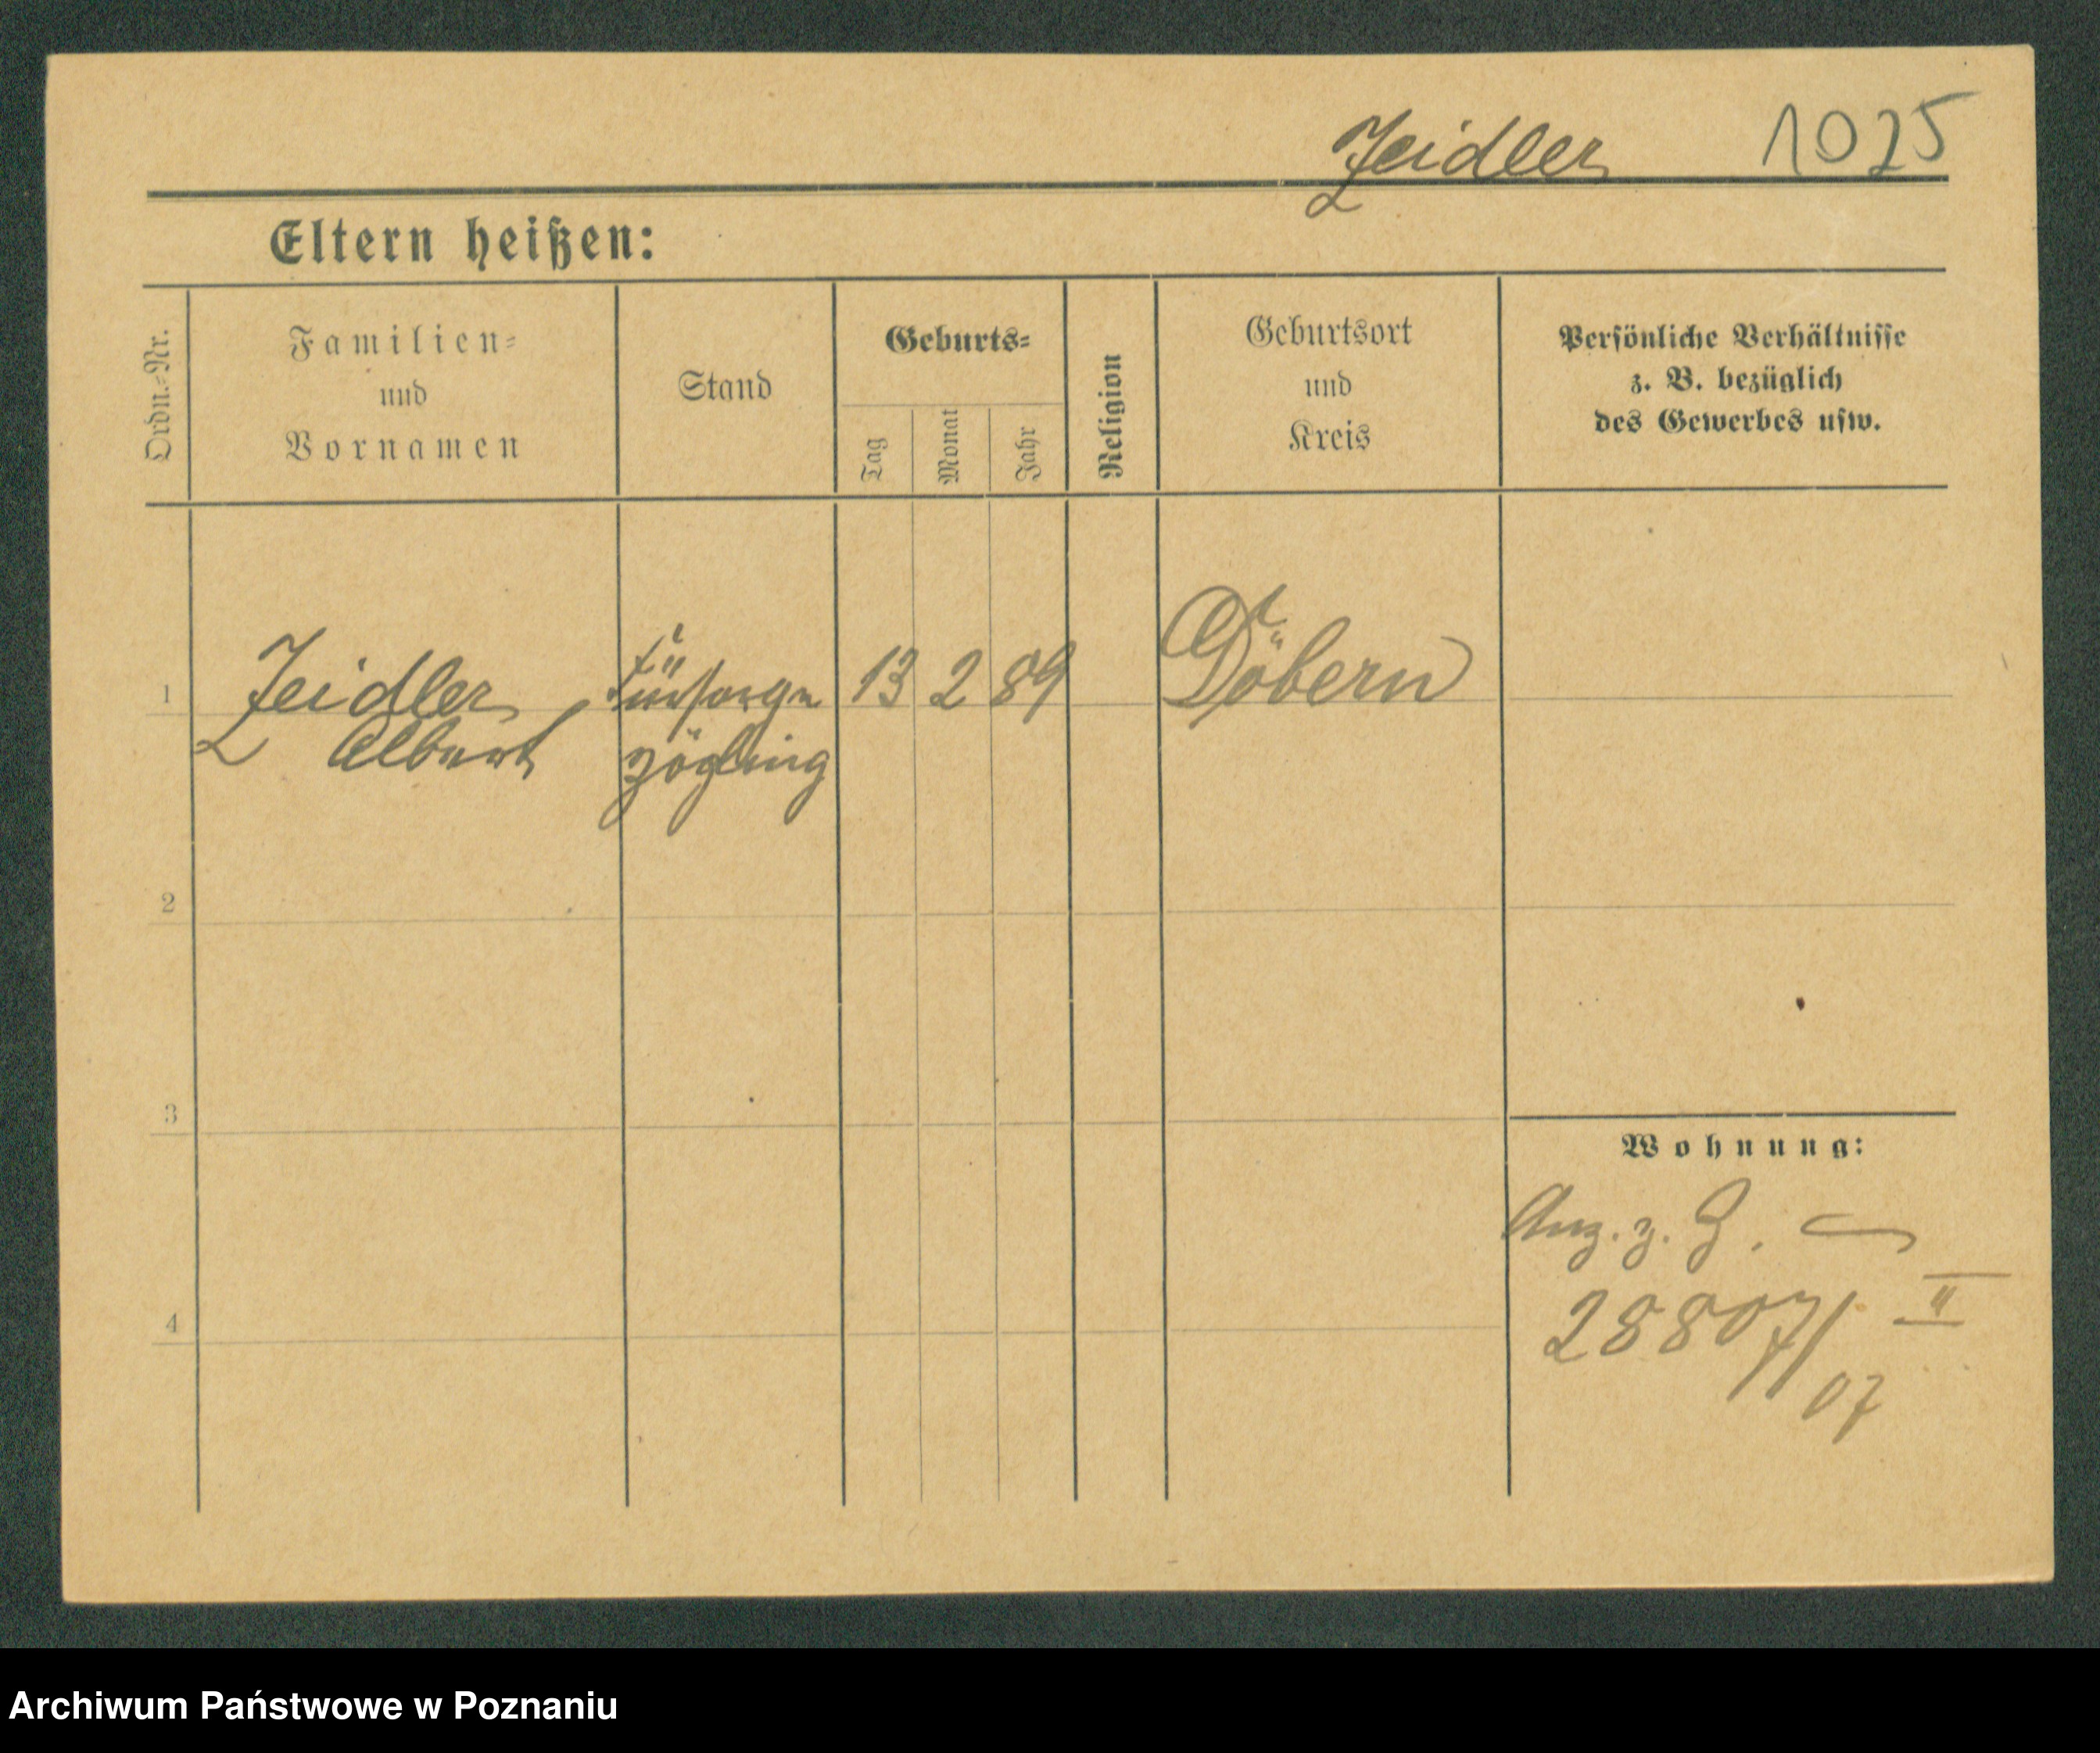 Zeidler 1025
Eltern heißen:
Ordn.-Nr.
Familien-
und
Vornamen
Stand
Geburts-
Tag
Monat
Jahr
Religion
Geburtsort
und
Kreis
Persönliche Verhältnisse
z. B. bezüglich
des Gewerbes usw.
1 Zeidler, Fürsorge 13 2 89 Döbern
Albert zögling
2
3
Wohnung:
Anz. z.
4 28807/ II
07
Archiwum Państwowe w Poznaniu